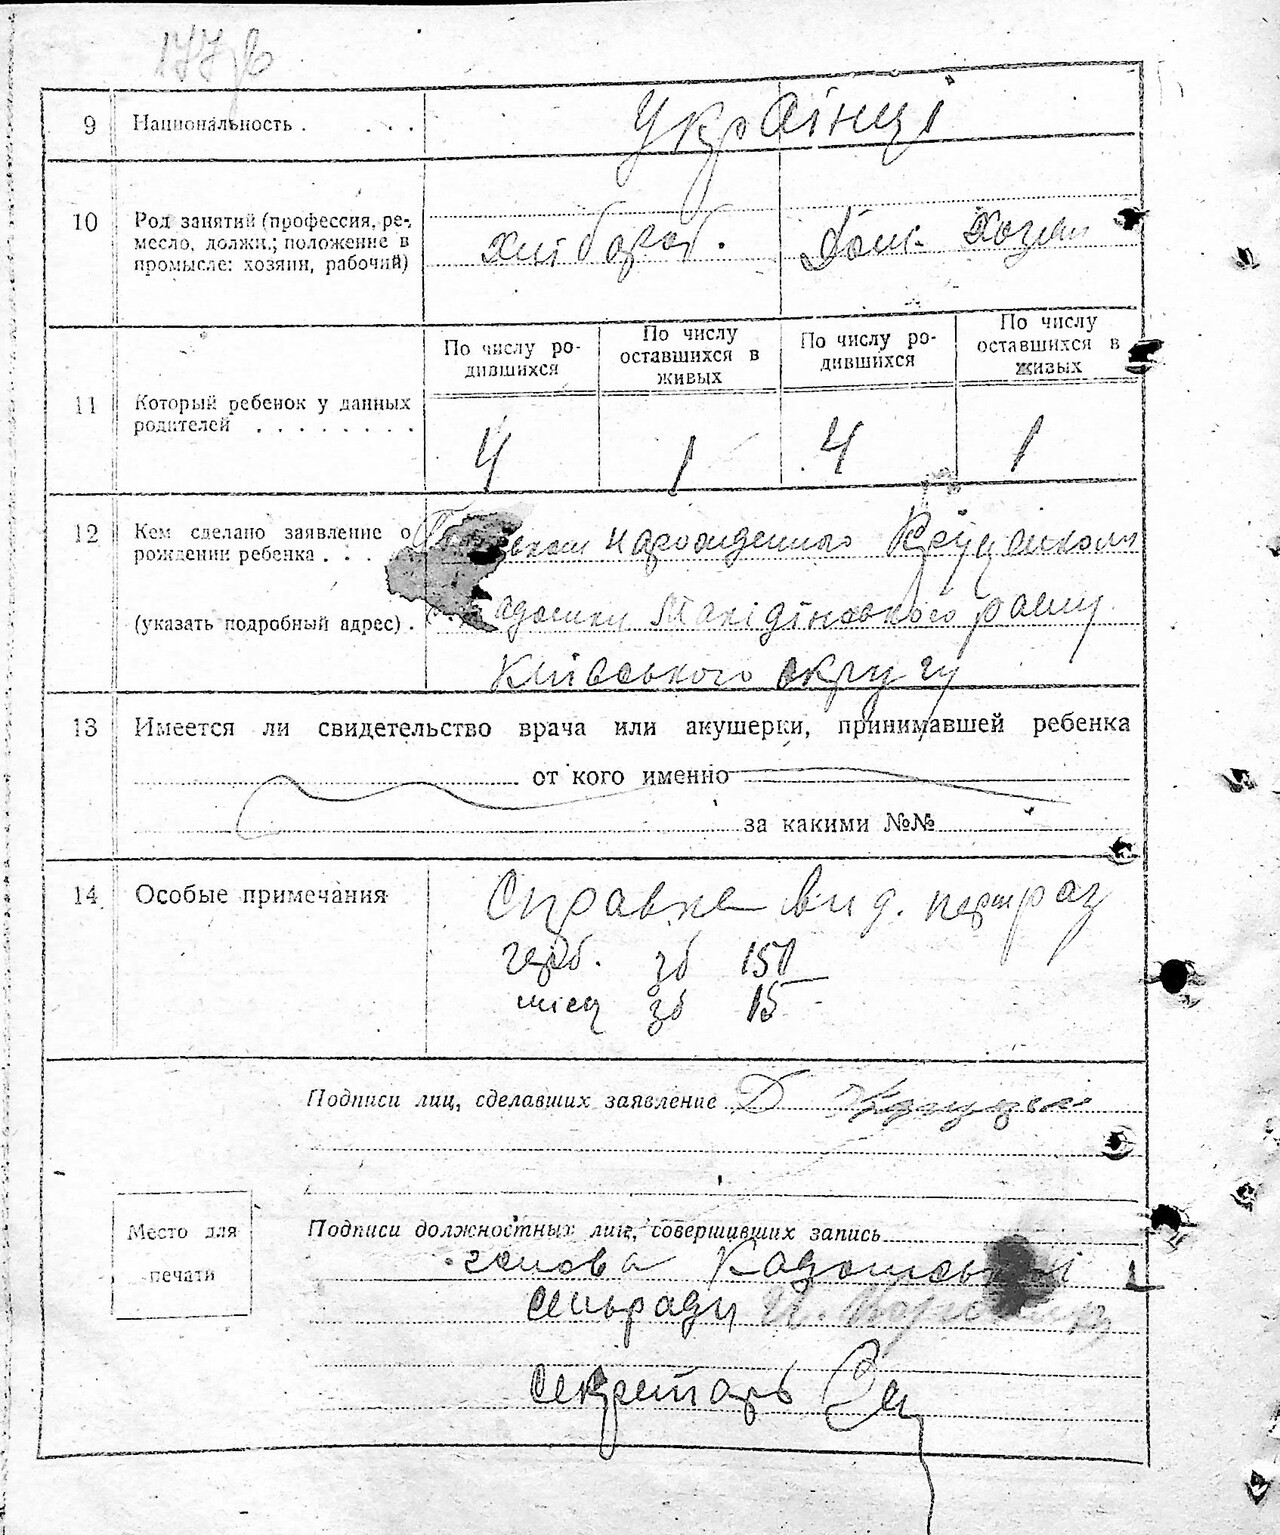 177
9 Национальность . . . . Українці
10 Род занятий (профессия, ре-
месло, должн.; положение в
промысле: хозяин, рабочий)
хлібороб. Дом. Хозяй
11 Который ребенок у данных
родителей . . . . . . . .
По числу ро-
дившихся
По числу
оставшихся в
живых
По числу ро-
дившихся
По числу
оставшихся в
живых
4 1 4 1
12 Кем сделано заявление о
рождении ребенка . . .
(указать подробный адрес) .
народженого
району
Київського округу
13 Имеется ли свидетельство врача или акушерки, принимавшей ребенка
от кого именно
за какими №№
14 Особые примечания
Справка вид. перш раз
герб. зб 150
місц зб 15
Подписи лиц, сделавших заявление Д
Место для
печати
Подписи должностных лиц, совершивших запись
голова
сельради
Секретарь